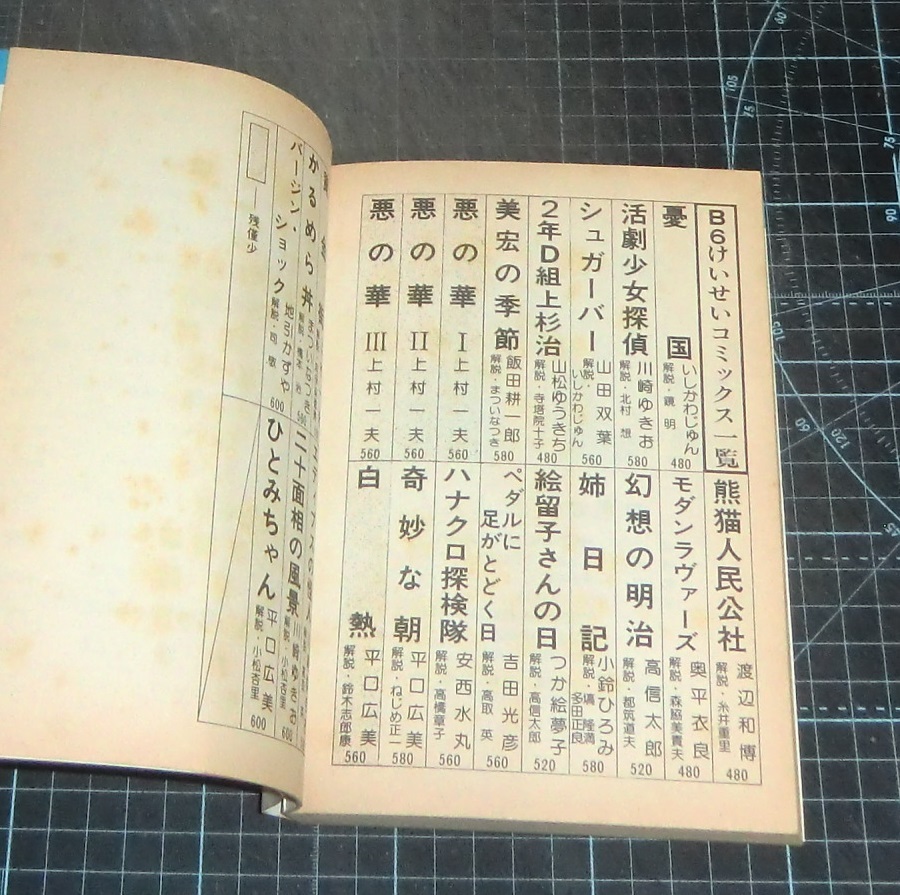 B6けいせいコミックス一覧
憂国 いしかわじゅん 解説・鏡 明 480
活劇少女探偵 川崎ゆきお 解説・北村 想 580
シュガーバー 山田双葉 解説・いしかわじゅん 560
2年D組上杉治 山松ゆうきち 解説・寺塔院十子 480
美宏の季節 飯田耕一郎 解説・まついなつき 580
悪の華 I 上村一夫 560
悪の華 II 上村一夫 560
悪の華 III 上村一夫 560
熊猫人民公社 渡辺和博 解説・糸井重里 480
モダンラヴァーズ 奥平衣良 解説・森脇美貴夫 480
幻想の明治 高信太郎 解説・都筑道夫 520
姉日記 小鈴ひろみ 解説・塙 隆満 多田正良 580
絵留子さんの日 つか絵夢子 解説・高信太郎 520
ペダルに足がとどく日 吉田光彦 解説・高取 英 560
ハナクロ探検隊 安西水丸 解説・高橋章子 560
奇妙な朝 平口広美 解説・ねじめ正一 580
白熱 平口広美 解説・鈴木志郎康 560
かるめら丼 まついなつき 解説・橋本 治
バージン・ショック 地引かずや 解説・司 敬 600
残僅少
二十面相の風景 川崎ゆきお 解説・小松杏里 600
ひとみちゃん 平口広美 解説・小松杏里 600
60
105
75
75
90
105
60
120
45